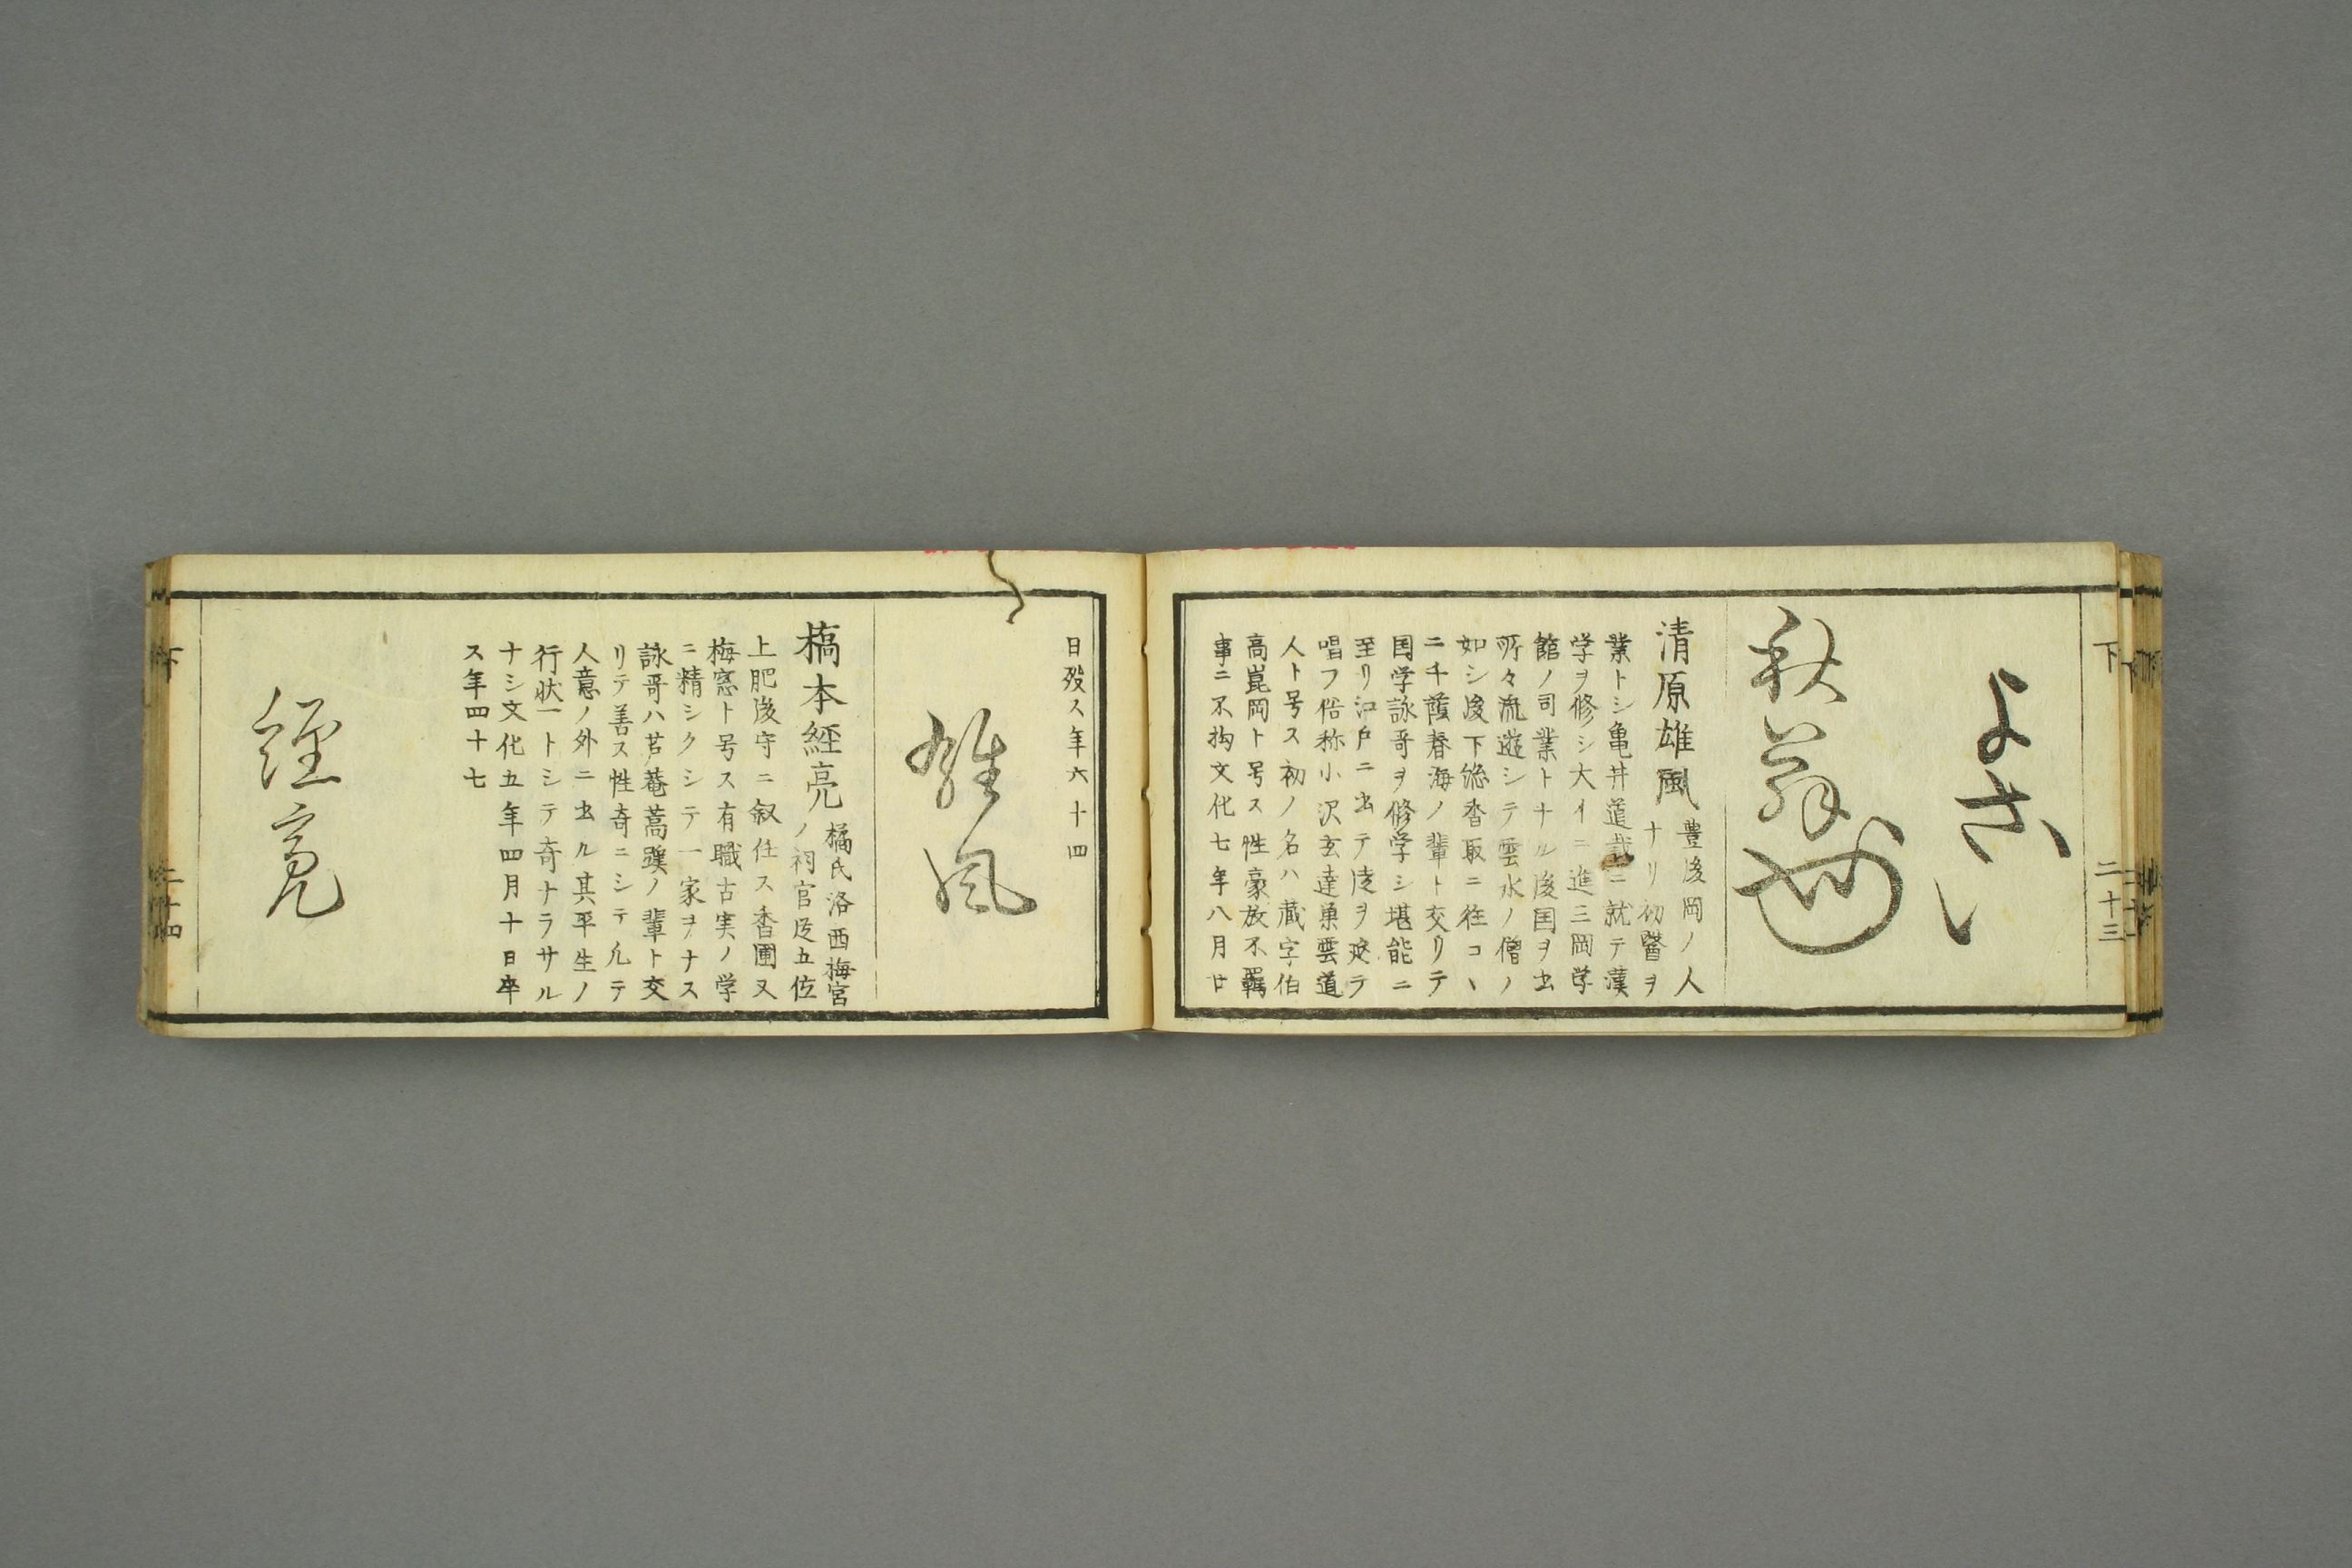 下
二十三
よさい
秋翁
清原雄風
豊後岡ノ人
ナリ初醫ヲ
業トシ亀井道載ニ就テ漢
学ヲ修シ大イニ進三岡学
館ノ司業トナル後国ヲ出
所々流遊シテ雲水ノ僧ノ
如シ後下總香取ニ往コヽ
ニ千蔭春海ノ輩ト交リテ
国学詠哥ヲ修学シ堪能ニ
至リ江戸ニ出テ徒ヲ延テ
唱フ俗称小沢玄達巣雲道
人ト号ス初ノ名ハ蔵字伯
高崑岡ト号ス性豪放不羈
事ニ不拘文化七年八月廿
日歿ス年六十四
雄風
橋本經亮
橘氏洛西梅宮
ノ祠官正五位
上肥後守ニ叙任ス香圃又
梅窓ト号ス有職古実ノ学
ニ精シクシテ一家ヲナス
詠哥ハ芦菴蒿蹊ノ輩ト交
リテ善ス性奇ニシテ凢テ
人意ノ外ニ出ル其平生ノ
行状一トシテ奇ナラサル
ナシ文化五年四月十日卒
ス年四十七
經亮
下
二十四